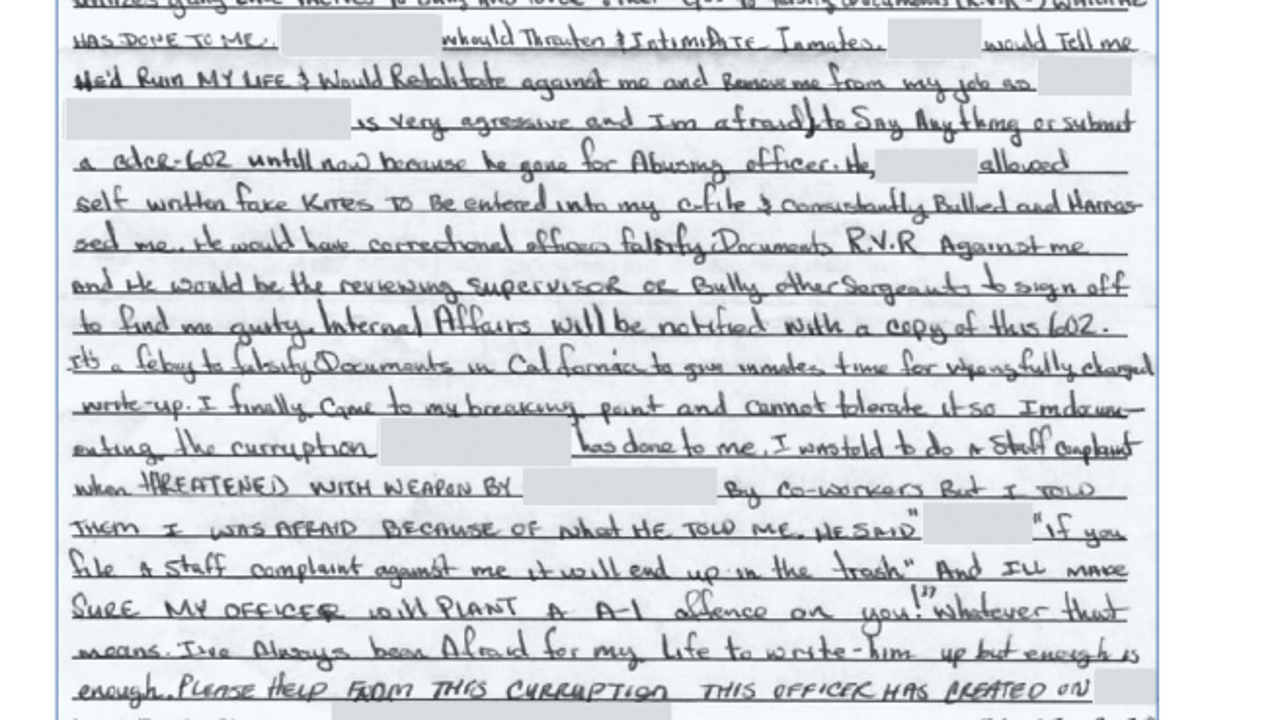 HAS DONE TO ME. whould Threaten & Intimidate Inmates. would Tell me
He'd Ruin MY LIFE & Would Retalitate against me and Remove me from my job so
is very agressive and Im afraid) to Say Any thing or submit
a cdcr-602 untill now because he gone for Abusing officer. He, allowed
self written fake Kites TO Be entered into my c-file & consistantly Bullied and Harras-
sed me.. He would have correctional officers falsify Documents R.V.R Against me
and He would be the reviewing supervisor or Bully other Sergeants to sign off
to find me guity. Internal Affairs will be notified with a copy of this 602.
It's a felony to falsify Documents in California to give inmates time for wrongfully charged
write-up. I finally Came to my breaking point and cannot tolerate it so Im docum-
enting the curruption has done to me. I was told to do A Staff complaint
when THREATENED WITH WEAPON BY By Co-workers But I TOLD
THEM I WAS AFRAID BECAUSE OF what HE TOLD ME. HE SAID " " If you
file A Staff complaint against me it will end up in the trash" And I'LL MAKE
SURE MY OFFICER will PLANT A A-1 offence on you!" Whatever that
means. I've Always been Afraid for my Life to write-him up but enough is
enough. PLEASE HELP FROM THIS CURRUPTION THIS OFFICER HAS CREATED ON